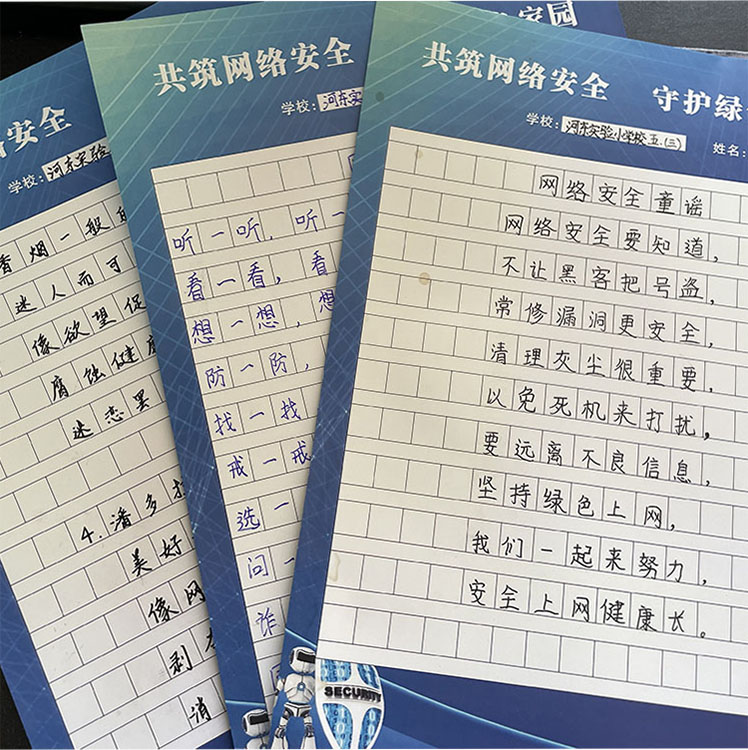 络安全
学校：河东实验
香烟一般的
迷人而可
像欲望促
腐蚀健康
迷恋罢
4.潘多拉
美好
像网
剥夺
消
共筑网络安全
家园
学校：河东实
听一听，听一
看一看，看
想一想，想
防一防，
找一找
戒一戒
选一
问一
诈
共筑网络安全 守护绿
学校：河东实验小学校五.(三)
姓名：
网络安全童谣
网络安全要知道，
不让黑客把号盗，
常修漏洞更安全，
清理灰尘很重要，
以免死机来打扰，
要远离不良信息，
坚持绿色上网，
我们一起来努力，
安全上网健康长。
SECURITY